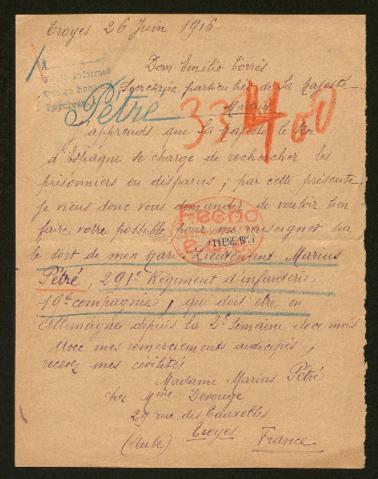 Troyes 26 Juin 1916
Dom Emilio Torrès
Secrétaire particulier de Sa Majesté
Madrid
Pétré
33400
apprends que Sa Majesté le Roi
d'Espagne se charge de rechercher les
prisonniers ou disparus ; par cette présente,
je viens donc vous demander de vouloir bien
faire votre possible pour me renseigner sur
le sort de mon mari Lieutenant Marius
Pétré, 291e Régiment d'infanterie
19e compagnie, qui doit être en
Allemagne depuis la 2e semaine de ce mois
Avec mes remerciements anticipés,
recevez mes civilités
Madame Marius Pétré
chez Mme Devouge
29 rue des
Troyes
(Aube) France
Fecho